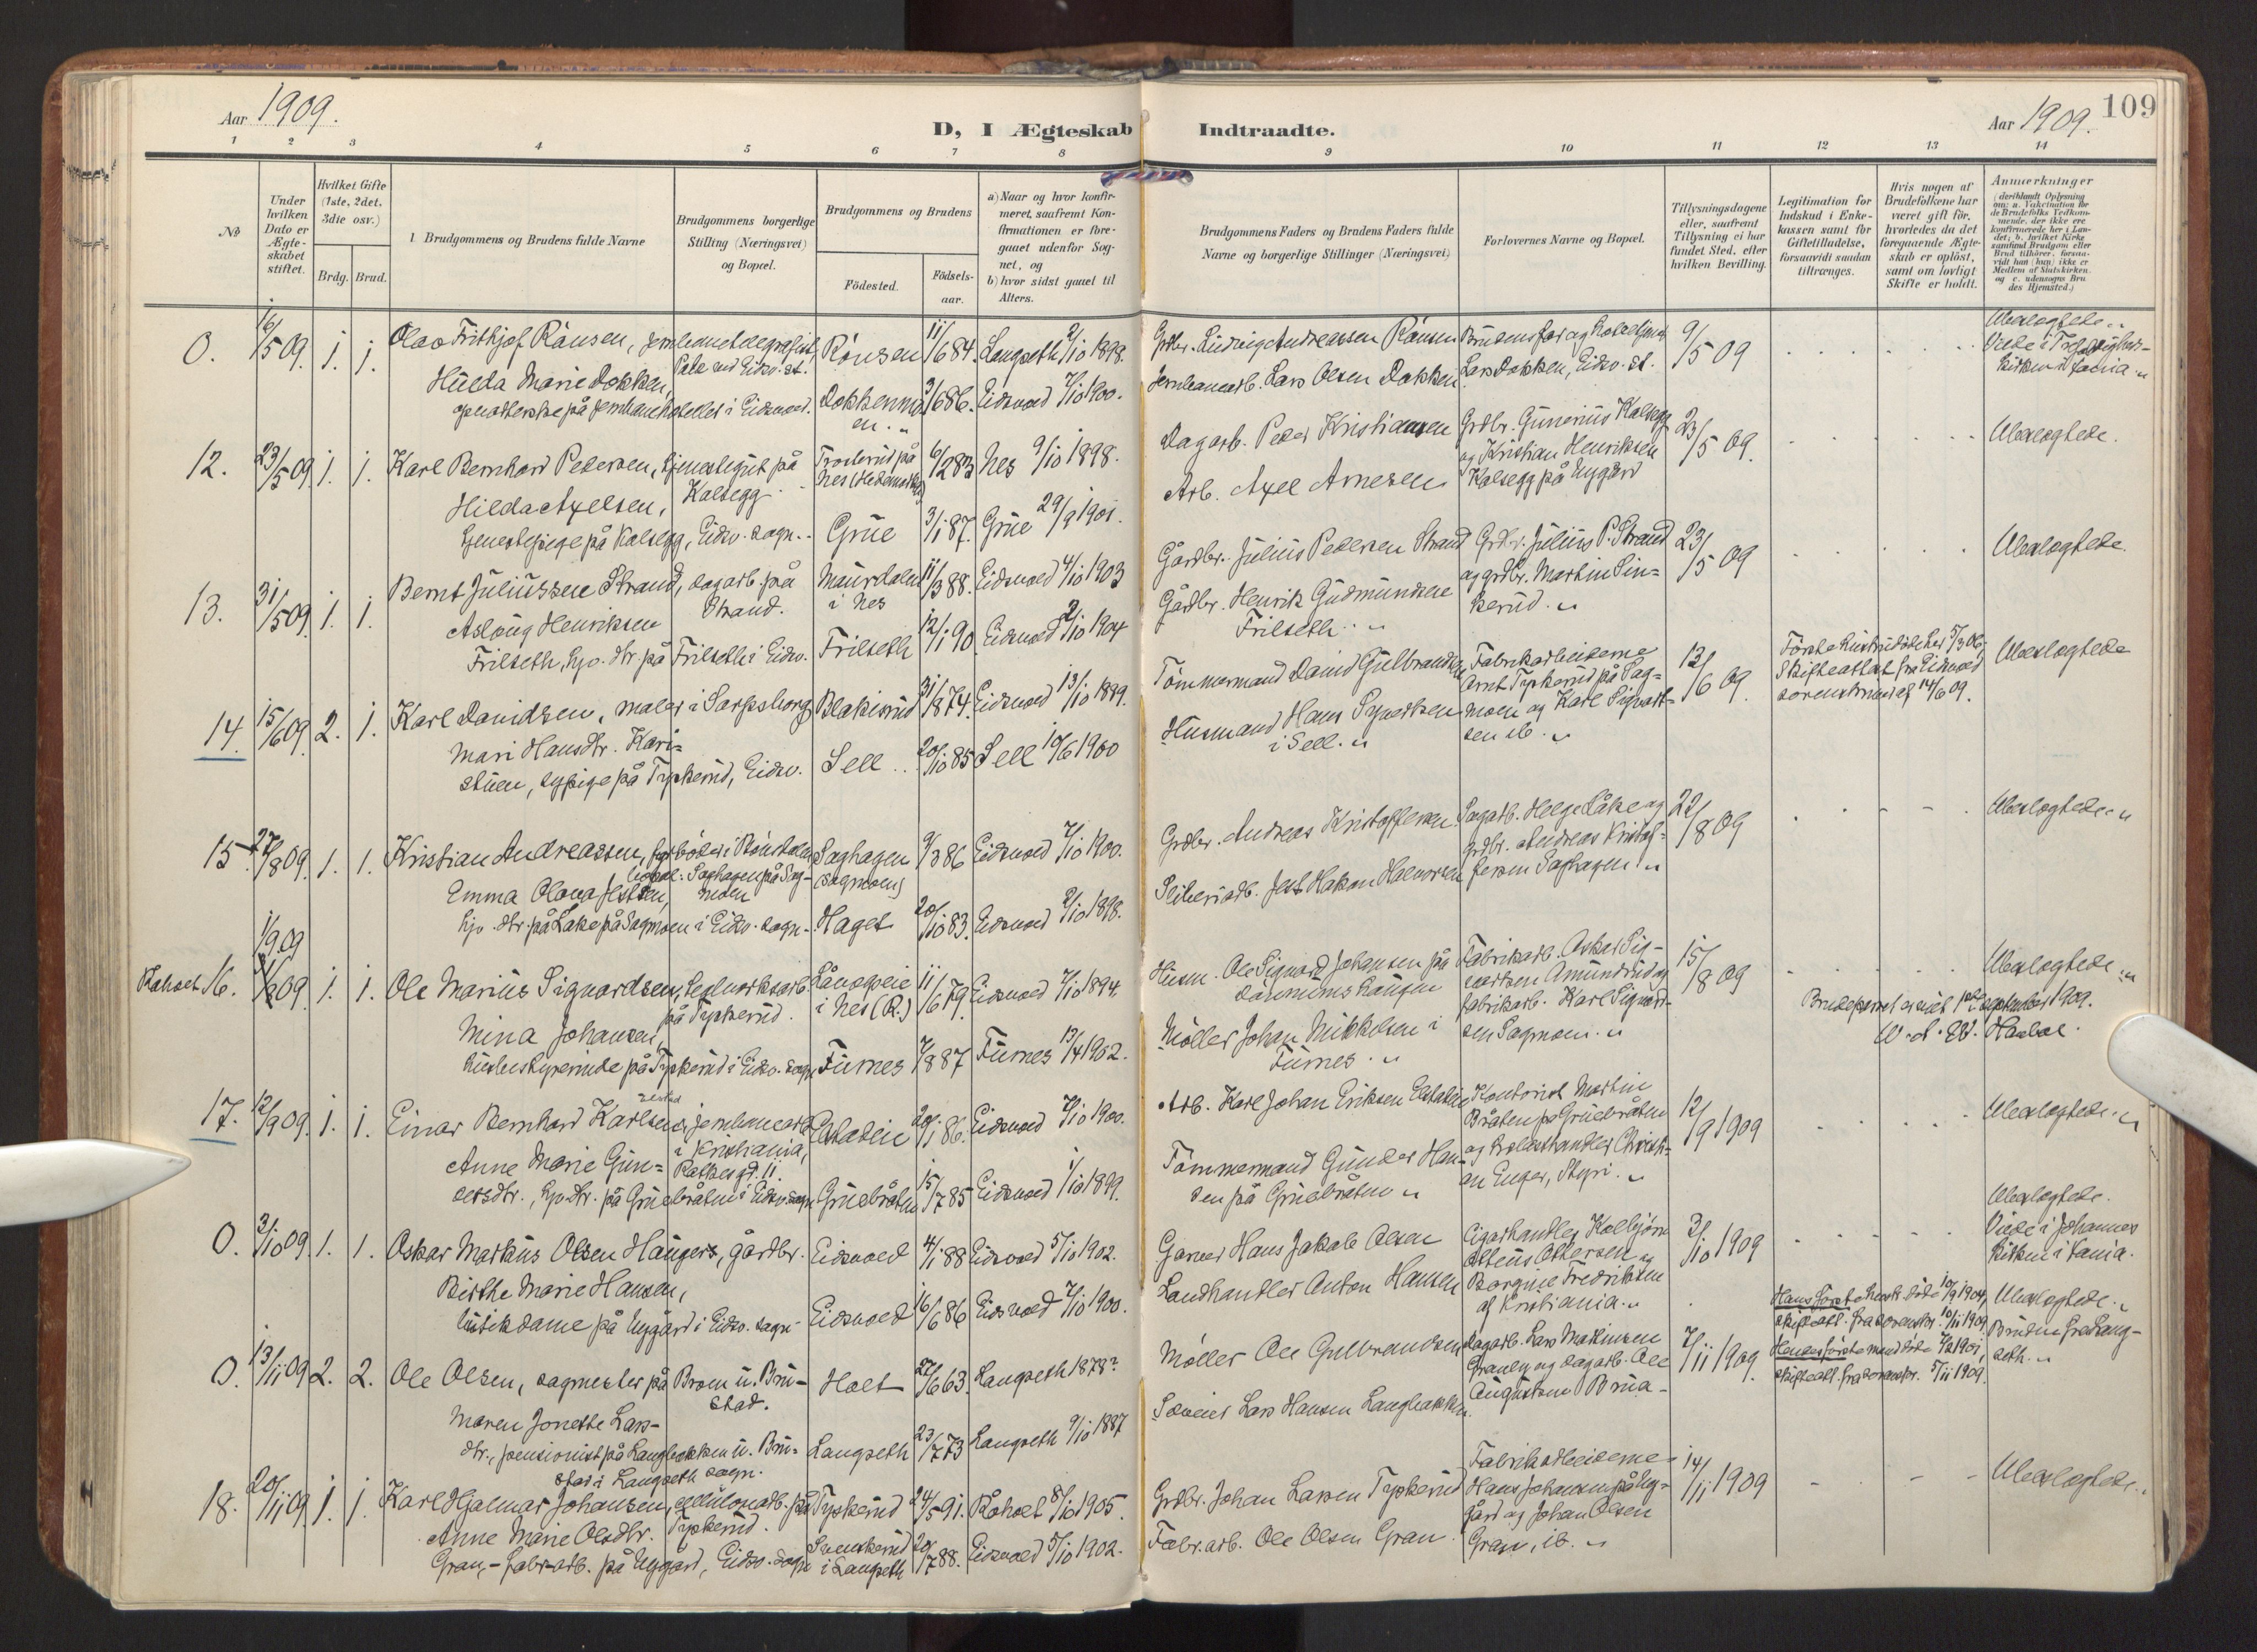 Aar 1909.
D, I Ægteskab Indtraadte.
Aar 1909. 109
1 2 3 4 5 6 7 8 9 10 11 12 13 14
No
Under hvilken Dato er Ægteskabet stiftet.
Hvilket Gifte (1ste, 2det, 3die osv.)
Brdg. Brud.
Brudgommens og Brudens fulde Navne
Brudgommens borgerlige Stilling (Næringsvei) og Bopæl.
Brudgommens og Brudens
Födested.
Födsels-aar.
a) Naar og hvor konfir-
meret, saafremt Kon-
firmationen er fore-
gaaet udenfor Sog-
net, og
b) hvor sidst gaaet til
Alters.
Brudgommens Faders og Brudens Faders fulde
Navne og borgerlige Stillinger (Næringsvei)
Forlovernes Navne og Bopæl.
Tillysningsdagene
eller, saafremt
Tillysning ei har
fundet Sted, efter
hvilken Bevilling.
Legitimation for
Indskud i Enke-
kassen samt for
Giftetilladelse,
forsaavidt saadan
tiltrænges.
Hvis nogen af
Brudefolkene har
været gift för,
hvorledes da det
foregaaende Ægte-
skab er oplöst,
samt om lovligt
Skifte er holdt.
Anmærkninger
(deriblandt Oplysning
om: a. Vakcination for
de Brudefolks Vedkom-
mende, der ikke ere
konfirmerede her i Lan-
det; b. hvilket Kirke-
samfund Brudgom eller
Brud tilhörer, forsaa-
vidt han (hun) ikke er
Medlem af Statskirken,
og c. udensogns Bru-
des Hjemsted.)
0. 16/5 09. 1. 1. Olav Frithjof Rånsen, jernbanetelegrafist
Hilda Marie Dokken,
på jernbanehotellet i Eidsvold.
Rånsen 11/6 84. Langseth 2/10 1898.
Dokkenmoen 3/6 86. Eidsvold 7/10 1900.
Grdbr. Ludvig Andreassen Rånsen
Jernbanearb. Lars Olsen Dokken
Brudens far og
Lars Dokken, Eidsv. st.
9/5 09
Ubeslægtede
Viede i Trefoldigheds-
kirken i Kania.
12. 23/5 09. 1. 1. Karl Bernhard Pedersen, tjenestegut på
Kalsegg
Hilda Axelsen,
tjenestepige på Kalsegg, Eidsv. sogn.
Nes (Hedemarken) 6/2 83 Nes 9/10 1898.
Grue 3/1 87. Grue 29/9 1901.
Dagarb. Peder Kristiansen
Arb. Axel Arnesen
Grdbr. Gunerius Kalsegg
og Kristian Henriksen
Kalsegg på Nygård
23/5 09.
Ubeslægtede.
13. 31/5 09. 1. 1. Bernt Juliussen Strand, dagarb. på
Strand.
Aslaug Henriksen
Frilseth, hjv. dtr. på Frilseth i Eidsv.
Maurdalen
i Nes
11/3 88. Eidsvold 4/10 1903
Frilseth 12/1 90. Eidsvold 2/10 1904
Gårdbr. Julius Pedersen Strand
Gårdbr. Henrik Gudmundsen
Frilseth.
Grdbr. Julius P. Strand
og grdbr. Martin Sin-
kerud.
23/5 09
Ubeslægtede.
14. 15/6 09. 2. 1. Karl Davidsen, maler i Sarpsborg
Mari Hansdtr. Kari-
stuen, sypige på Tyskerud, Eidsv.
Blakisrud 31/8 74. Eidsvold 13/10 1889.
Sell 20/10 85 Sell 10/6 1900
Tømmermand David Gulbrandsen
Husmand Hans Syverksen
i Sell.
Fabrikarbeiderne
Arnt Tyskerud på Sag-
moen og Karl Sigvart-
sen ib.
13/6 09.
Første hustru døde her 5/3 06,
Skifteattest fra Eidsvold
sorenskriveri af 14/6 09.
Ubeslægtede
15. 27/8 09. 1. 1. Kristian Andreassen,
bopæl: Saghagen på Sag-
moen
Emma Olava Jestsen,
hjv. dtr. på Låke på Sagmoen i Eidsv. sogn.
Saghagen
Sagmoen
9/3 86 Eidsvold 7/10 1900.
Haget 20/10 83. Eidsvold 2/10 1898.
Grdbr. Andreas Kristoffersen
Sliberiarb. Jest Hakon Halvorsen
Sagarb. Helge Låke og
grdbr. Andreas Kristof-
fersen Saghagen
22/8 09
Ubeslægtede.
1/9 09
Råholt 16. 1. 1. Ole Marius Sigvardsen, teglverksarb.
på Tyskerud.
Mina Johansen,
husbestyrerinde på Tyskerud i Eidsv. sogn
i Nes (R.) 11/6 79. Eidsvold 7/10 1894.
Furnes 7/8 87 Furnes 13/4 1902.
Husm. Ole Sigvard Johansen på
Møller Johan Mikkelsen i
Furnes.
Fabrikarb. Oskar Sig-
vartsen Amundrud og
fabrikarb. Karl Sigvart-
sen Sagmoen.
15/8 09
Ubeslægtede.
Brudeparret er viet 1ste september 1909.
17. 12/9 09. 1. 1. Einar Bernhard Karlsen, jernbanearb.
i Kristiania,
Rathkesgt. 11.
Anne Marie Gun-
dersdtr., hjv. dtr. på Gruebråten i Eidsv. sogn
20/1 86. Eidsvold 7/10 1900.
Gruebråten 15/7 85 Eidsvold 1/10 1899.
Arb. Karl Johan Eriksen
Tømmermand Gunder Han-
sen på Gruebråten
Kontorist Martin
Bråten på Gruebråten
og
Enger, Styri.
12/9 1909
Ubeslægtede.
0. 3/10 09. 1. 1. Oskar Markus Olsen Haugers, gårdbr.
Birthe Marie Hansen,
butikdame på Nygård i Eidsv. sogn
Eidsvold 4/1 88 Eidsvold 5/10 1902.
Eidsvold 16/6 86 Eidsvold 7/10 1900.
Garver Hans Jakob Olsen
Landhandler Anton Hansen
Cigarhandler Kolbjørn
Ottersen og
Fredriksen
af Kristiania.
3/10 1909
Ubeslægtede.
Viede i Johannes
kirken i Kania.
0. 13/11 09 2. 2. Ole Olsen, sagmester på Broen u. Bru-
stad.
Maren Jonette Lars-
dtr., pensionist på Langbakken u. Bru-
stad i Langseth sogn.
Holt 27/6 63. Langseth 1878?
Langseth 23/7 73 Langseth 9/10 1887
Møller Ole Gulbrandsen
Lars Hansen Langbakken.
Dagarb. Lars
og dagarb. Ole
7/11 1909.
Hans første hustr. døde 10/9 1904,
skifteatt. fra sorenskr. 10/11 1909.
Hendes første mand døde 1901,
skifteatt. fra sorenskr. 5/11 1909.
Ubeslægtede.
Bruden fra Lang-
seth.
18. 20/11 09. 1. 1. Karl Hjalmar Johansen, cellulosearb. på
Tyskerud.
Anne Marie Olsdtr.
Gran, - fabr-arb. på Nygård, Eidsv. sogn
Tyskerud 24/5 91. Råholt 8/10 1905.
i Langseth 20/7 88. Eidsvold 5/10 1902.
Grdbr. Johan Larsen Tyskerud
Fabr. arb. Ole Olsen Gran.
Fabrikarbeiderne
Hans Johansen på Ny-
gård og Johan Olsen
Gran, ib.
14/11 1909
Ubeslægtede.